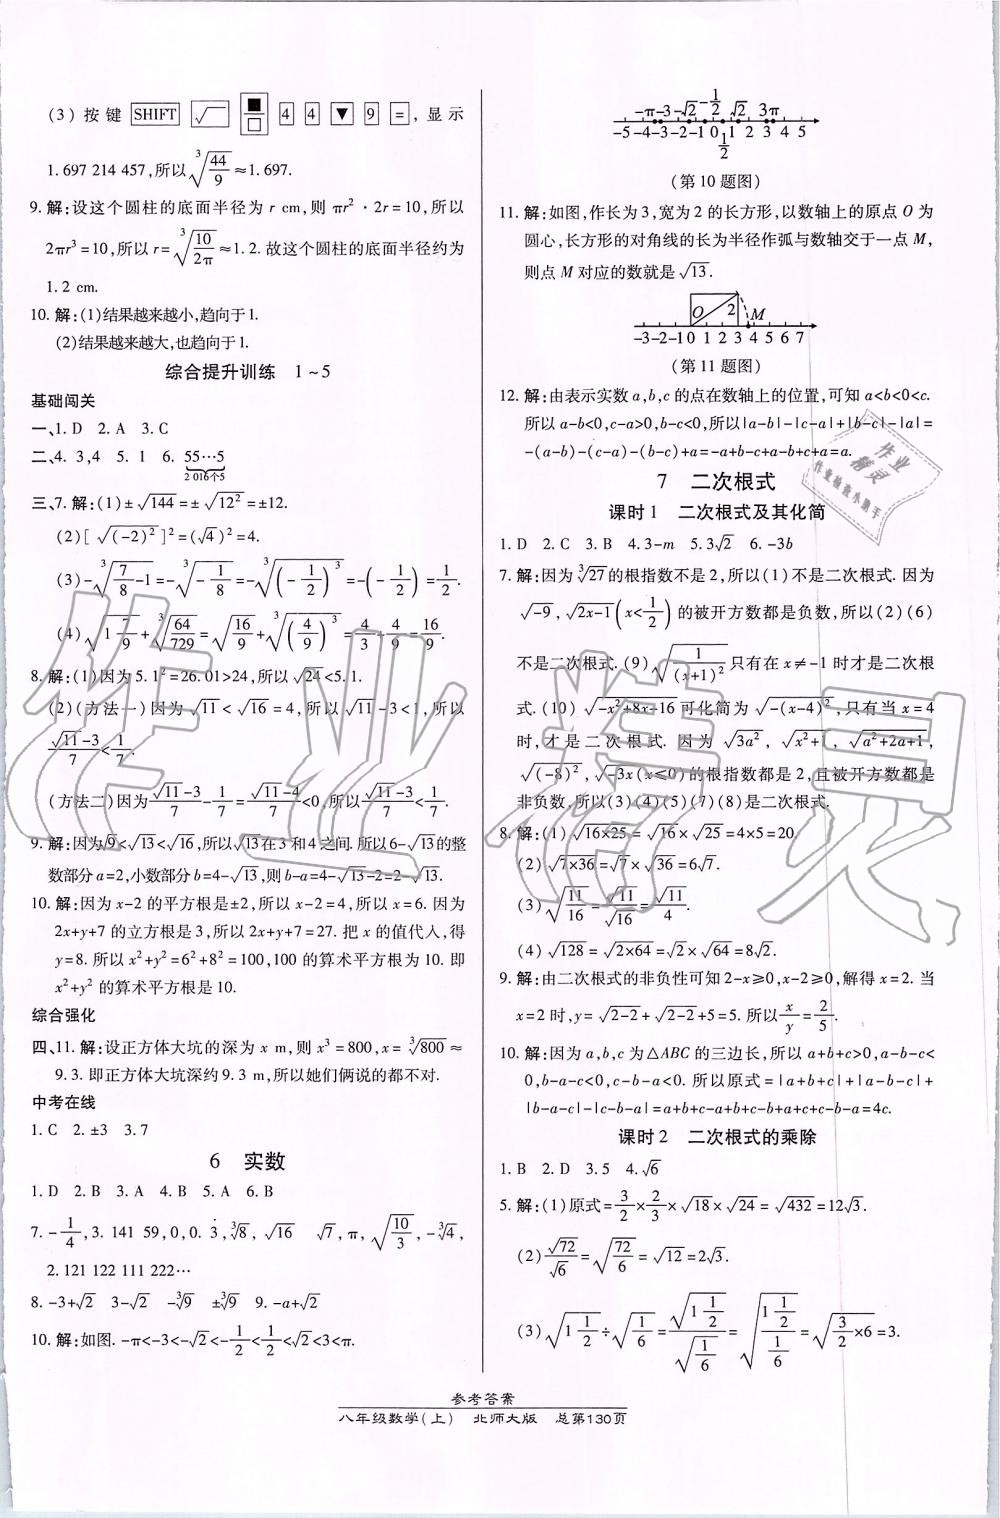 (3) 按键 SHIFT √ ■/□ 4 4 ▼ 9 =, 显示
1.697 214 457,所以∛(44/9)≈1.697.
9.解:设这个圆柱的底面半径为 r cm,则 πr²·2r=10,所以
2πr³=10,所以 r=∛(10/2π)≈1.2.故这个圆柱的底面半径约为
1.2 cm.
10.解:(1)结果越来越小,趋向于1.
(2)结果越来越大,也趋向于1.
综合提升训练 1~5
基础闯关
一、1.D 2.A 3.C
二、4.3,4 5.1 6.55…5
2 016个5
三、7.解:(1)±√144=±√12²=±12.
(2)[√(-2)²]²=(√4)²=4.
(3)-∛(7/8-1)=-∛(-1/8)=-∛((-1/2)³)=-(-1/2)=1/2.
(4)√(1 7/9)+∛(64/729)=√(16/9)+∛((4/9)³)=4/3+4/9=16/9.
8.解:(1)因为5.1²=26.01>24,所以√24<5.1.
(2)(方法一)因为√11<√16=4,所以√11-3<1,所以
(√11-3)/7<1/7.
(方法二)因为(√11-3)/7-1/7=(√11-4)/7<0,所以(√11-3)/7<1/7.
9.解:因为√9<√13<√16,所以√13在3和4之间.所以6-√13的整
数部分a=2,小数部分b=4-√13,则b-a=4-√13-2=2-√13.
10.解:因为x-2的平方根是±2,所以x-2=4,所以x=6.因为
2x+y+7的立方根是3,所以2x+y+7=27.把x的值代入,得
y=8.所以x²+y²=6²+8²=100,100的算术平方根为10.即
x²+y²的算术平方根是10.
综合强化
四、11.解:设正方体大坑的深为x m,则x³=800,x=∛800≈
9.3.即正方体大坑深约9.3 m,所以她们俩说的都不对.
中考在线
1.C 2.±3 3.7
6 实数
1.D 2.B 3.A 4.B 5.A 6.B
7.-1/4,3.141 59,0,0.3̇,∛8,√16 √7,π,√(10/3),-∛4,
2.121 122 111 222…
8.-3+√2 3-√2 -∛9 ±∛9 9.-a+√2
10.解:如图.-π<-3<-√2<-1/2<1/2<√2<3<π.
-π -3 -√2 -1/2 √2 3 π
-5-4-3-2-1 0 1 2 3 4 5
1/2
(第10题图)
11.解:如图,作长为3,宽为2的长方形,以数轴上的原点O为
圆心,长方形的对角线的长为半径作弧与数轴交于一点M,
则点M对应的数就是√13.
O 2 M
-3-2-1 0 1 2 3 4 5 6 7
(第11题图)
12.解:由表示实数a,b,c的点在数轴上的位置,可知a<b<0<c.
所以a-b<0,c-a>0,b-c<0,所以|a-b|-|c-a|+|b-c|-|a|=
-(a-b)-(c-a)-(b-c)+a=-a+b-c+a-b+c+a=a.
7 二次根式
课时1 二次根式及其化简
1.D 2.C 3.B 4.3-m 5.3√2 6.-3b
7.解:因为∛27的根指数不是2,所以(1)不是二次根式.因为
√-9,√(2x-1)(x<1/2)的被开方数都是负数,所以(2)(6)
不是二次根式.(9)√(1/(x+1)²)只有在x≠-1时才是二次根
式.(10)√(-x²+8x-16)可化简为√(-(x-4)²),只有当x=4
时,才是二次根式.因为√(3a²),√(x²+1),√(a²+2a+1),
√(-8)²,√(-3x)(x≤0)的根指数都是2,且被开方数都是
非负数,所以(3)(4)(5)(7)(8)是二次根式.
8.解:(1)√(16×25)=√16×√25=4×5=20.
(2)√(7×36)=√7×√36=6√7.
(3)√(11/16)=√11/√16=√11/4.
(4)√128=√(2×64)=√2×√64=8√2.
9.解:由二次根式的非负性可知2-x≥0,x-2≥0,解得x=2.当
x=2时,y=√(2-2)+√(2-2)+5=5.所以x/y=2/5.
10.解:因为a,b,c为△ABC的三边长,所以a+b+c>0,a-b-c<
0,b-a-c<0,c-b-a<0.所以原式=|a+b+c|+|a-b-c|+
|b-a-c|-|c-b-a|=a+b+c-a+b+c-b+a+c+c-b-a=4c.
课时2 二次根式的乘除
1.B 2.D 3.5 4.√6
5.解:(1)原式=3/2×2/3×√18×√24=√432=12√3.
(2)√72/√6=√(72/6)=√12=2√3.
(3)√(1 1/2)÷√(1/6)=√(1 1/2)/√(1/6)=√((1 1/2)/(1/6))=√(3/2×6)=3.
参考答案
八年级数学(上) 北师大版 总第130页
作业精灵
作业
精灵
作业检查小助手